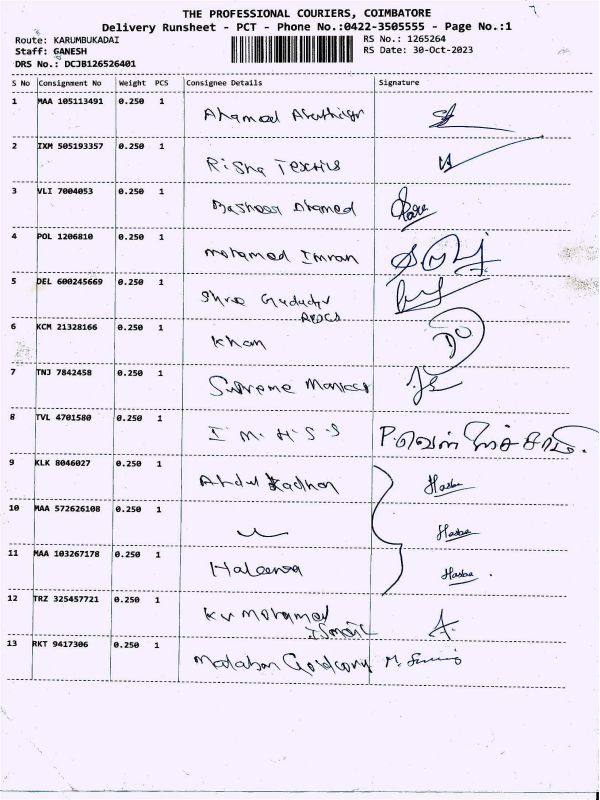 THE PROFESSIONAL COURIERS, COIMBATORE
Delivery Runsheet - PCT - Phone No.:0422-3505555 - Page No.:1
Route: KARUMBUKADAI
RS No.: 1265264
Staff: GANESH
RS Date: 30-Oct-2023
DRS No.: DCJB126526401
S No Consignment No Weight PCS Consignee Details Signature
1 MAA 105113491 0.250 1 Ahamed
2 IXM 505193357 0.250 1 Risha Textiles
3 VLI 7004053 0.250 1 Basheer Ahamed
4 POL 1206810 0.250 1 Mohamed Imran
5 DEL 600245669 0.250 1 Shree
6 KCM 21328166 0.250 1 Khan
7 TNJ 7842458 0.250 1 Supreme
8 TVL 4701580 0.250 1 I M H S S
9 KLK 8046027 0.250 1 Abdul Kadhar
10 MAA 572626108 0.250 1
11 MAA 103267178 0.250 1 Haleema
12 TRZ 325457721 0.250 1 KV Mohamed
Ismail
13 RKT 9417306 0.250 1 Malabar